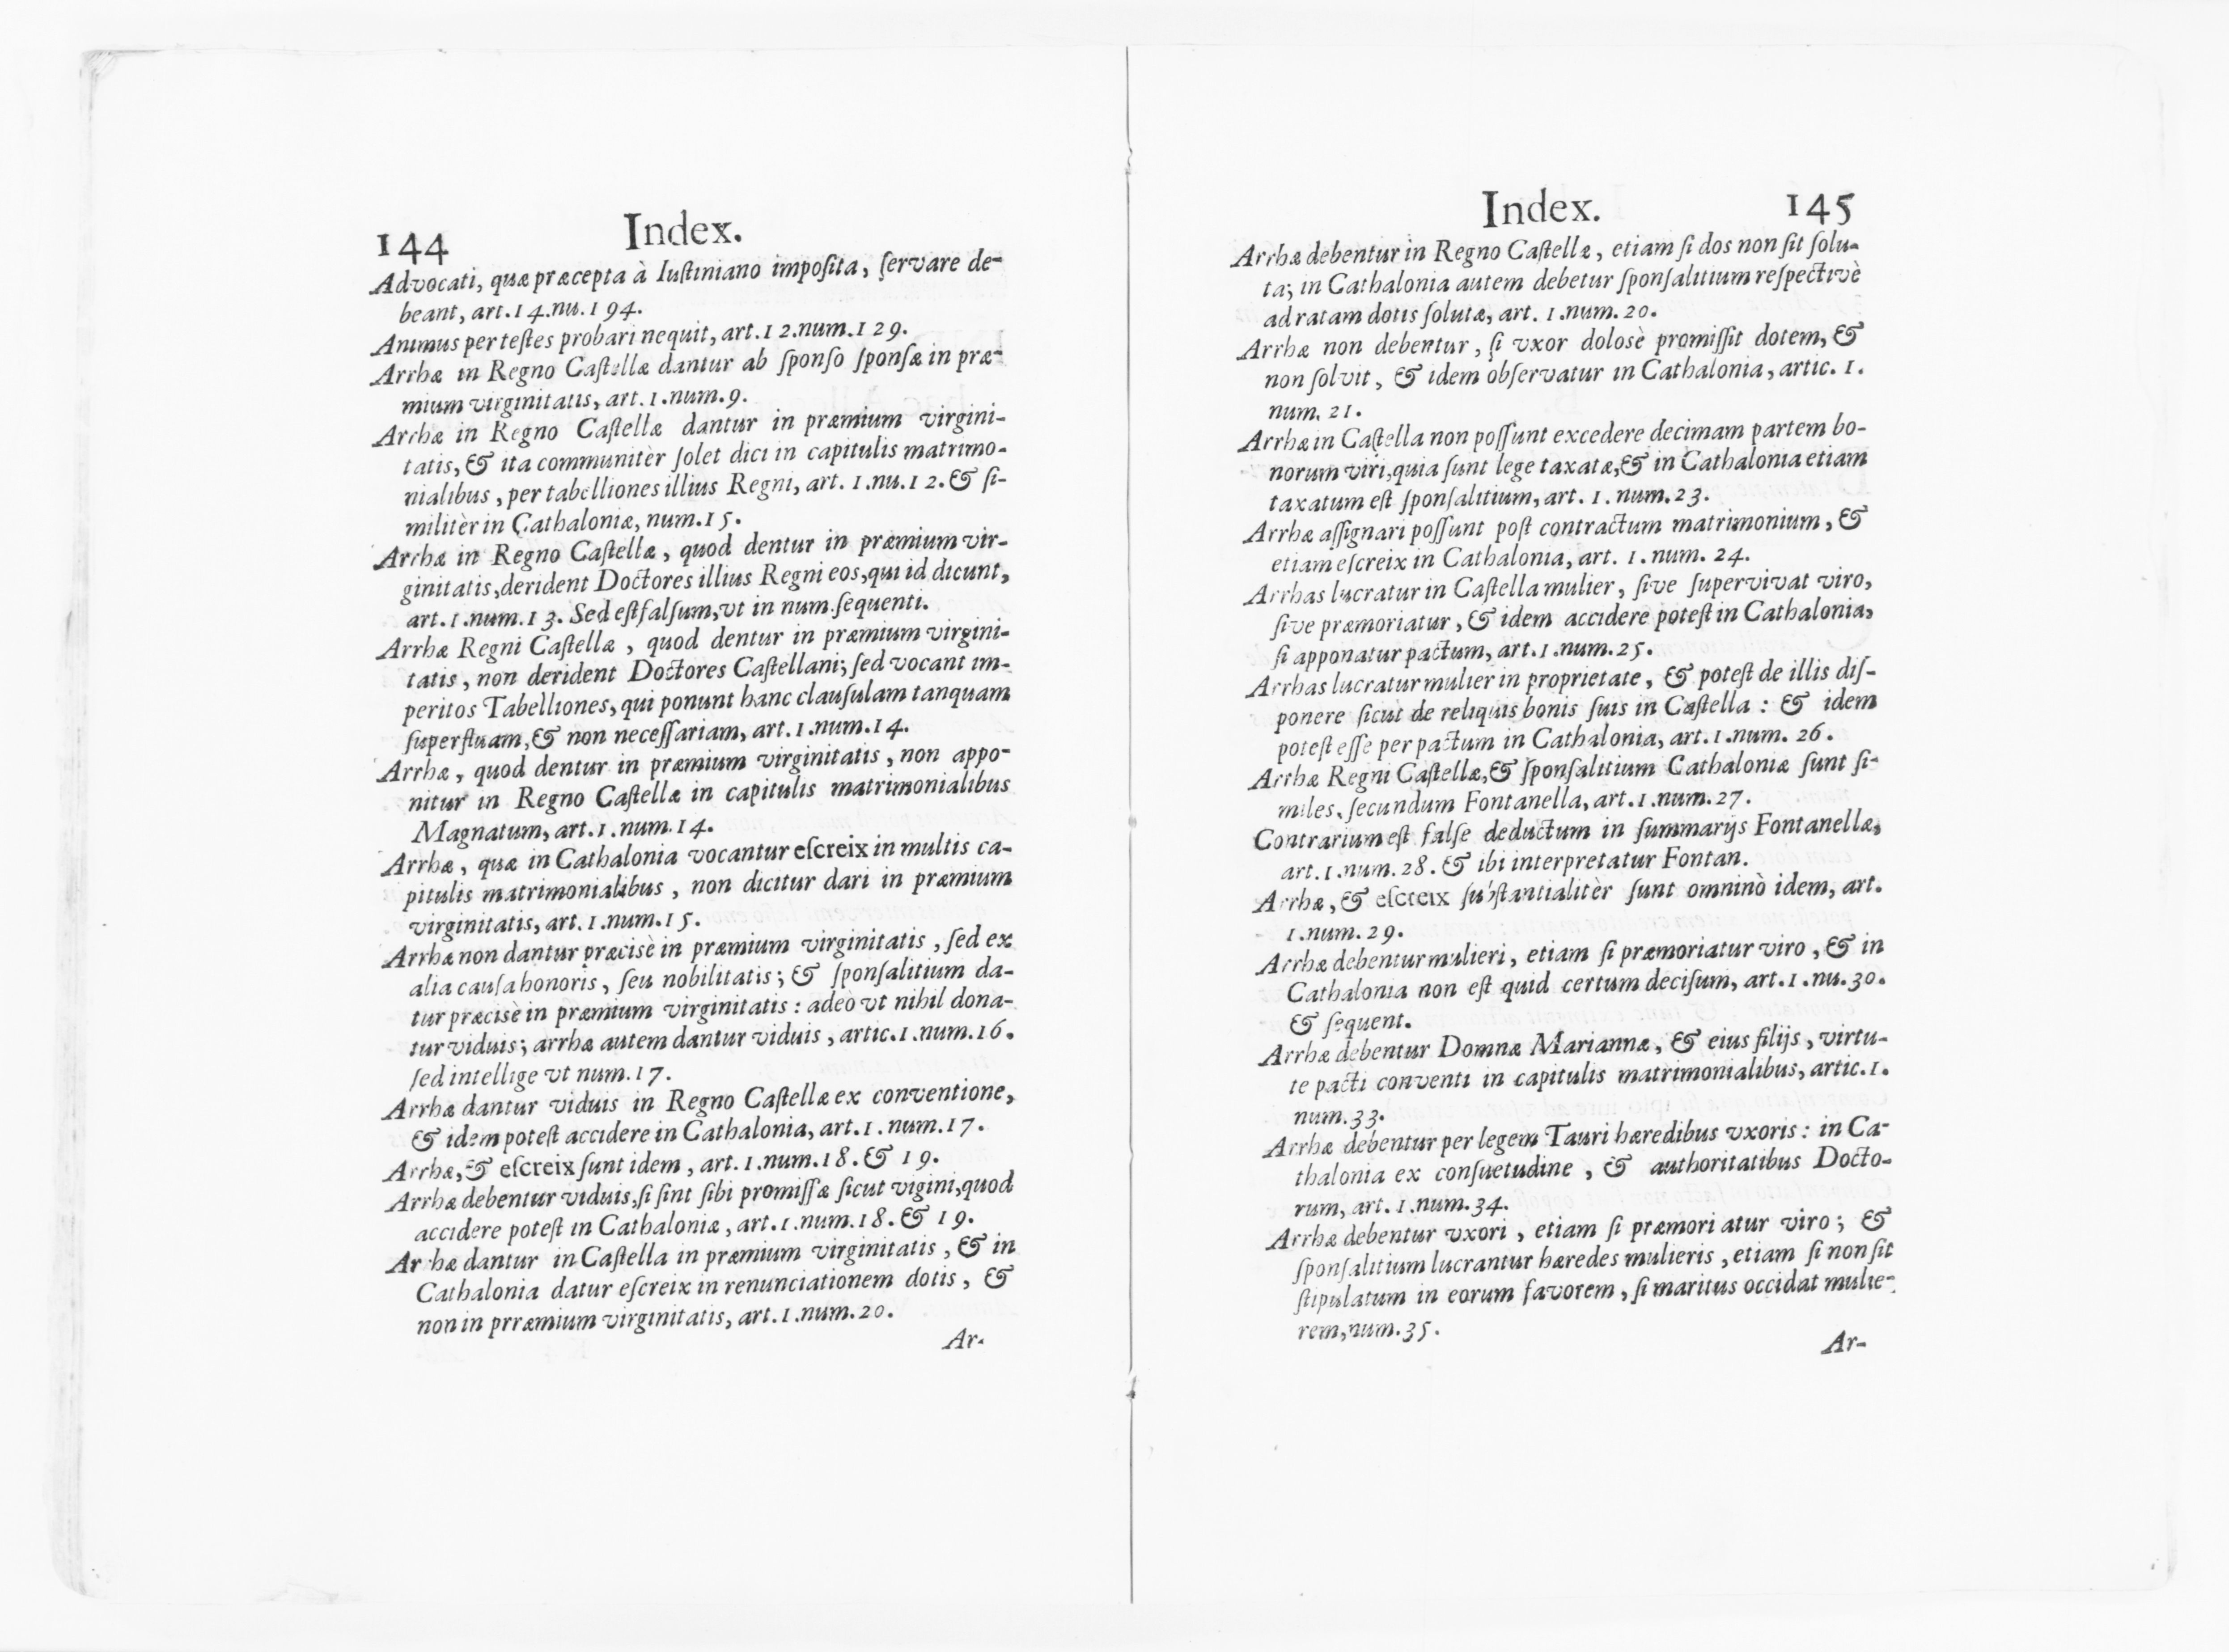 144 Index.
Advocati, quæ præcepta à Iuſtiniano impoſita, ſervare de-
beant, art.14.nu.194.
Animus per teſtes probari nequit, art.12.num.129.
Arrhæ in Regno Caſtellæ dantur ab ſponſo ſponſæ in præ-
mium virginitatis, art.1.num.9.
Arrhæ in Regno Caſtellæ dantur in præmium virgini-
tatis, & ita communitèr ſolet dici in capitulis matrimo-
nialibus, per tabelliones illius Regni, art. 1.nu.12. & ſi-
militèr in Cathaloniæ, num.15.
Arrhæ in Regno Caſtellæ, quod dentur in præmium vir-
ginitatis, derident Doctores illius Regni eos, qui id dicunt,
art.1.num.13. Sed eſt falſum, vt in num.ſequenti.
Arrhæ Regni Caſtellæ, quod dentur in præmium virgini-
tatis, non derident Doctores Caſtellani; ſed vocant im-
peritos Tabelliones, qui ponunt hanc clauſulam tanquam
ſuperfluam, & non neceſſariam, art.1.num.14.
Arrhæ, quod dentur in præmium virginitatis, non appo-
nitur in Regno Caſtellæ in capitulis matrimonialibus
Magnatum, art.1.num.14.
Arrhæ, quæ in Cathalonia vocantur eſcreix in multis ca-
pitulis matrimonialibus, non dicitur dari in præmium
virginitatis, art.1.num.15.
Arrhæ non dantur præcisè in præmium virginitatis, ſed ex
alia cauſa honoris, ſeu nobilitatis; & ſponſalitium da-
tur præcisè in præmium virginitatis: adeò vt nihil dona-
tur viduis; arrhæ autem dantur viduis, artic.1.num.16.
ſed intellige vt num.17.
Arrhæ dantur viduis in Regno Caſtellæ ex conventione,
& idem poteſt accidere in Cathalonia, art.1.num.17.
Arrhæ, & eſcreix ſunt idem, art.1.num.18. & 19.
Arrhæ debentur viduis, ſi ſint ſibi promiſſæ ſicut vigini, quod
accidere poteſt in Cathaloniæ, art.1.num.18. & 19.
Ar hæ dantur in Caſtella in præmium virginitatis, & in
Cathalonia datur eſcreix in renunciationem dotis, &
non in prræmium virginitatis, art.1.num.20.
Ar-
Index. 145
Arrhæ debentur in Regno Caſtellæ, etiam ſi dos non ſit ſolu-
ta; in Cathalonia autem debetur ſponſalitium reſpectivè
ad ratam dotis ſolutæ, art. 1.num.20.
Arrhæ non debentur, ſi vxor dolosè promiſſit dotem, &
non ſolvit, & idem obſervatur in Cathalonia, artic. 1.
num. 21.
Arrhæ in Caſtella non poſſunt excedere decimam partem bo-
norum viri, quia ſunt lege taxatæ, & in Cathalonia etiam
taxatum eſt ſponſalitium, art. 1. num.23.
Arrhæ aſſignari poſſunt poſt contractum matrimonium, &
etiam eſcreix in Cathalonia, art. 1.num. 24.
Arrhas lucratur in Caſtella mulier, ſive ſupervivat viro,
ſive præmoriatur, & idem accidere poteſt in Cathalonia,
ſi apponatur pactum, art.1.num.25.
Arrhas lucratur mulier in proprietate, & poteſt de illis diſ-
ponere ſicut de reliquis bonis ſuis in Caſtella : & idem
poteſt eſſe per pactum in Cathalonia, art.1.num. 26.
Arrhæ Regni Caſtellæ, & ſponſalitium Cathaloniæ ſunt ſi-
miles, ſecundum Fontanella, art.1.num.27.
Contrarium eſt falſe deductum in ſummarijs Fontanellæ,
art.1.num.28. & ibi interpretatur Fontan.
Arrhæ, & eſcreix ſubſtantialitèr ſunt omninò idem, art.
1.num.29.
Arrhæ debentur mulieri, etiam ſi præmoriatur viro, & in
Cathalonia non eſt quid certum deciſum, art.1.nu.30.
& ſequent.
Arrhæ debentur Domnæ Mariannæ, & eius filijs, virtu-
te pacti conventi in capitulis matrimonialibus, artic.1.
num.33.
Arrhæ debentur per legem Tauri hæredibus vxoris: in Ca-
thalonia ex conſuetudine, & authoritatibus Docto-
rum, art. 1.num.34.
Arrhæ debentur vxori, etiam ſi præmori atur viro; &
ſponſalitium lucrantur hæredes mulieris, etiam ſi non ſit
ſtipulatum in eorum favorem, ſi maritus occidat mulie-
rem, num.35.
Ar-